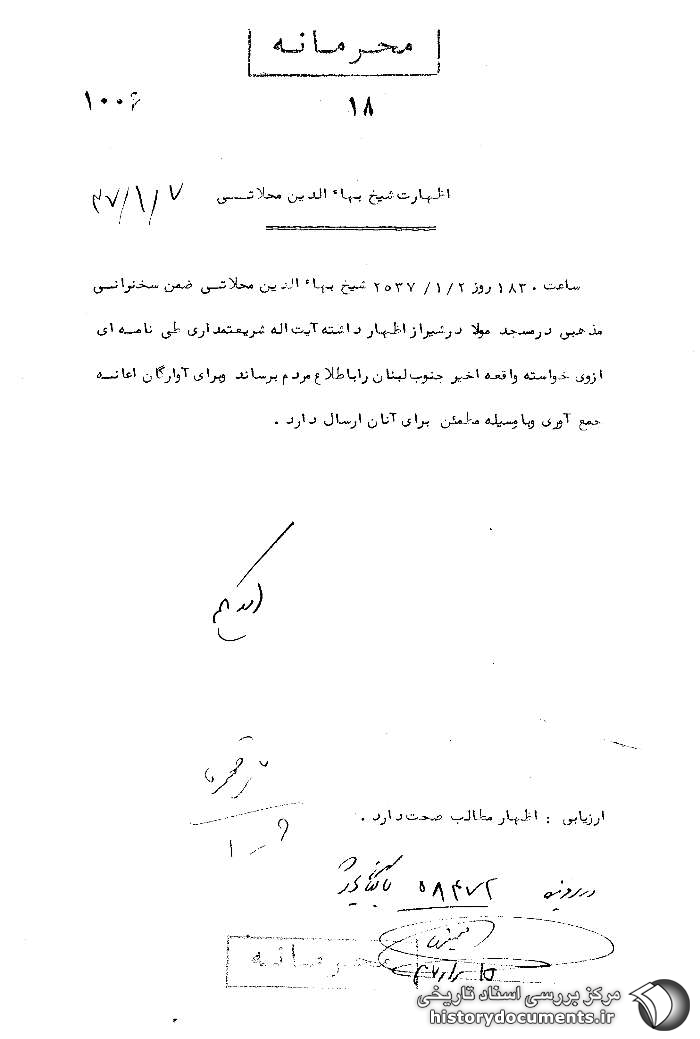 محرمانه
۱۸
۱۰۰۶
اظهارت شیخ بهاء الدین محلاتی
۳۷/۱/۷
ساعت ۱۸۳۰ روز ۲۵۳۷ /۱/۲ شیخ بهاء الدین محلاتی ضمن سخنرانی
مذهبی درمسجد مولا درشیراز اظهار داشته آیت اله شریعتمداری طی نامه ای
ازوی خواسته واقعه اخیر جنوب لبنان راباطلاع مردم برساند وبرای آوارگان اعانه
جمع آوری وباوسیله مطمئن برای آنان ارسال دارد .
ارزیابی : اظهار مطالب صحت دارد .
در پرونده ۵۸۴۷۲ بایگانی شود
محرمانه
مرکز بررسی اسناد تاریخی
historydocuments.ir